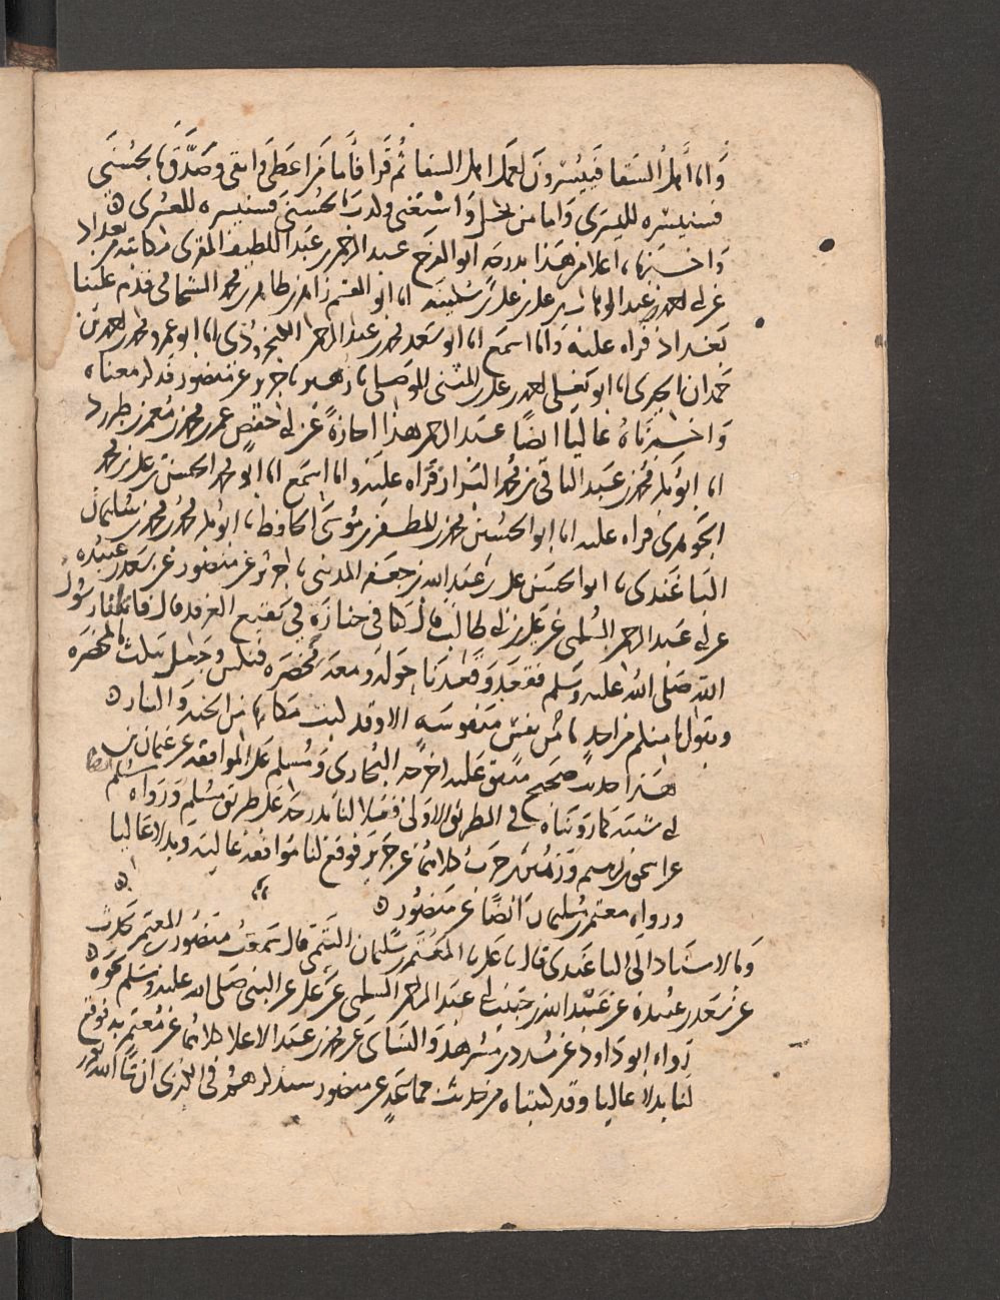 واما اهل الشقا فييسرون لعمل اهل الشقا ثم قرا فاما من اعطى واتقى وصدق بالحسنى
فسنيسره لليسرى واما من بخل واستغنى وكذب بالحسنى فسنيسره للعسرى
واخبرنا اعلا من هذا بدرجة ابو الفرج عبد الرحمن بن عبد اللطيف المقرى مكاتبة من بغداد
عن ابي احمد عبد الوهاب بن علي بن علي بن سكينة انا ابو القسم زاهر بن طاهر بن محمد الشحامي قدم علينا
بغداد قراه عليه وانا اسمع انا ابو سعد محمد بن عبد الرحمن الكنجروذى انا ابو عمرو محمد بن احمد بن
حمدان الحيرى نا ابو يعلى احمد بن علي بن المثنى الموصلى نا زهير نا جرير عن منصور فذكر معناه
واخبرناه عاليا ايضا عبد الرحمن هذا اجازة عن ابي حفص عمر بن محمد بن معمر بن طبرزد
انا ابو بكر محمد بن عبد الباقي بن محمد البزاز قراه عليه وانا اسمع انا ابو محمد الحسن بن علي بن محمد
الجوهرى قراه عليه انا ابو الحسين محمد بن المظفر بن موسى الحافظ نا ابو بكر محمد بن محمد بن سليمان
الباغندى نا ابو الحسن علي بن عبد الله بن جعفر المدينى نا جرير عن منصور عن سعد بن عبيدة
عن ابي عبد الرحمن السلمى عن علي بن ابي طالب قال كنا في جنازة في بقيع الغرقد قال فاتانا رسول
الله صلى الله عليه وسلم فقعد وقعدنا حوله ومعه مخصرة فنكس وجعل ينكت بالمخصرة
ويقول ما منكم من احد ما من نفس منفوسه الا وقد كتب مكانها من الجنة والنار
هذا حديث صحيح متفق عليه اخرجه البخارى ومسلم على الموافقة عن عثمان بن
ابي شيبة كما رويناه في الطريق الاولى فعلا لنا بدرجة على طريق مسلم ورواه مسلم ايضا
عن اسحق بن ابرهيم وزهير بن حرب كلاهما عن جرير فوقع لنا موافقة عالية وبدلا عاليا
ورواه معتمر بن سليمان ايضا عن منصور
وبالاسناد الى الباغندى قال نا علي نا المعتمر بن سليمان التيمى قال سمعت منصور بن المعتمر يحدث
عن سعد بن عبيدة عن عبد الله بن حبيب ابي عبد الرحمن السلمى عن علي عن النبى صلى الله عليه وسلم نحوه
رواه ابو داود عن مسدد بن مسرهد والنساى عن محمد بن عبد الاعلا كلاهما عن معتمر به فوقع
لنا بدلا عاليا وقد كتبناه من حديث جماعة عن منصور سنذكرهم في الجزء الذى ان شا الله